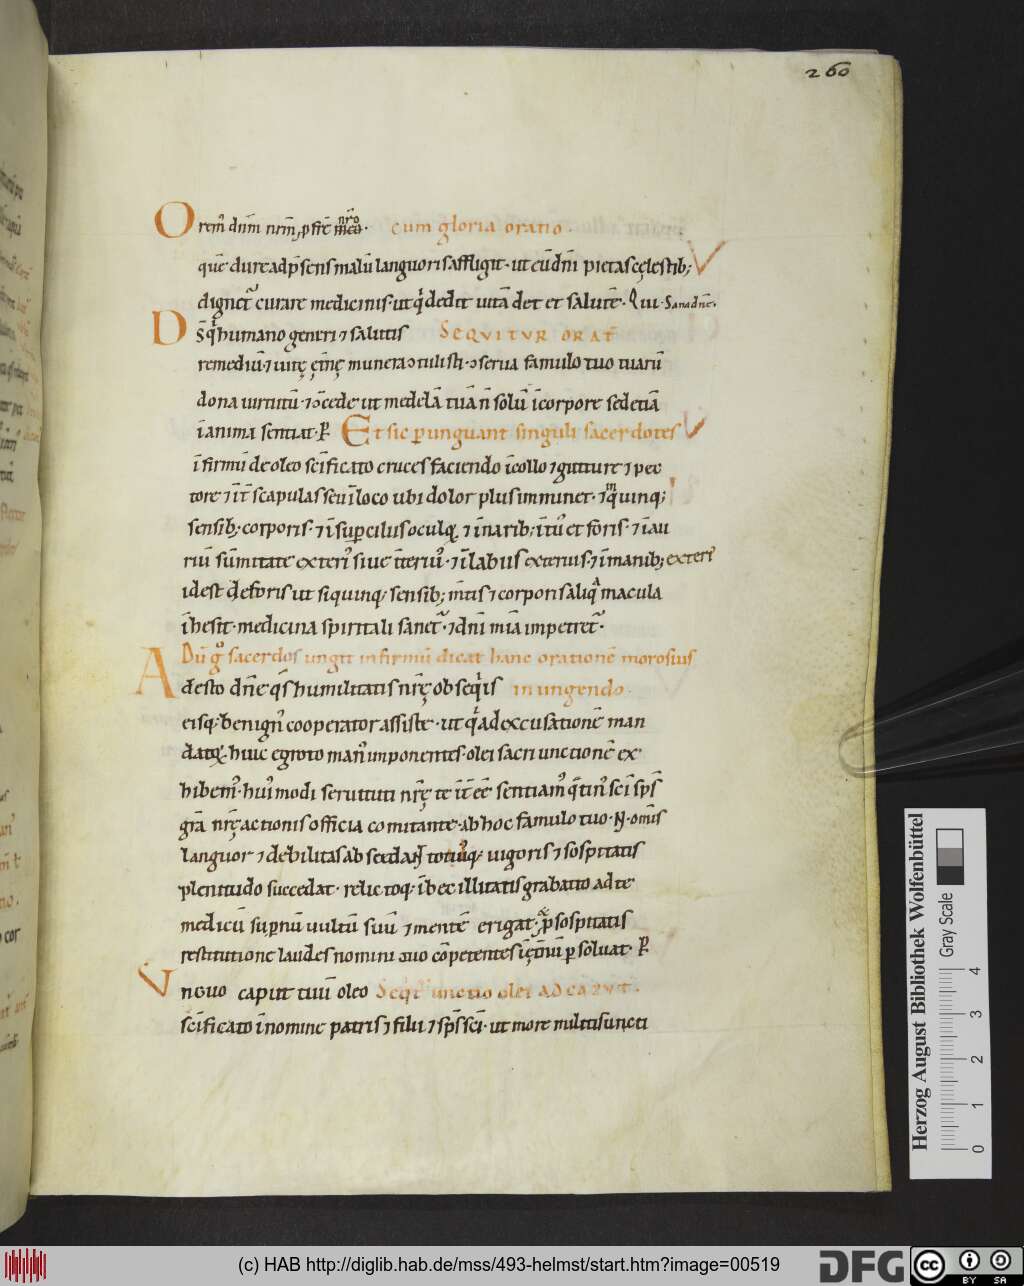 260
Orem᷒ dnm̄ nrm̄, ꝓ frē meo nr̄o. cum gloria oratio.
quē dure ad p̄sens malū languoris affligit. ut eūdn̄i pietas cęlestib;
dignet᷑ curare medicinis. ut q̇ dedit uitā det et salutē. Sana dnē.
D̄s q̇ humano generi ⁊ salutis SEQVITVR ORAT̄
remediū. ⁊ uitę ęt̄nę munera ɔtulisti. ɔserua famulo tuo tuarū
dona uirtutū. ⁊ ɔ̄cede ut medelā tuā n̄ solū ī corpore sed etiā
ī anima sentiat. P̄ Et sic ꝑunguant singuli sacerdotes
īfirmū de oleo sc̄ificato cruces faciendo ī collo ⁊ gutture ⁊ pec
tore ⁊ īt̄ scapulas seu ī loco ubi dolor plus imminet. ⁊ quinq;
sensib; corporis. ⁊ ī suꝑciliis oculoꝝ ⁊ ī narib; īt᷒ et foris. ⁊ ī au
riū sūmitate exteri᷒ siue īteriu᷒. ⁊ ī labiis exterius. ⁊ ī manib; exteri᷒
idest deforis ut si quinq; sensib; m̄tis ⁊ corporis aliq̇ macula
īhesit. medicina spiritali sanet᷑. ⁊ dn̄i mīa impetret᷑.
Dū gͦ sacerdos ungit infirmū dicat hanc orationē morosius
Adesto dn̄e q̄s humilitatis nr̄ę obseq̇is in ungendo.
eisq; benign᷒ cooperator assiste. ut q̇ ad excusationē man
datoꝝ. huic egroto man᷒ imponentes. olei sacri unctionē ex
hibem᷒. hui᷒modi seruituti nr̄ę te īt̄eē sentiam᷒ q̄tin᷒ sc̄i sp̄s
gr̄a nr̄ę actionis officia comitante. ab hoc famulo tuo. N. omīs
languor ⁊ debilitas abscedat totiusq; uigoris ⁊ sospitatis
plenitudo succedat. relictoq; ībecillitatis grabatto ad te
medicū suꝑnū uultū suū ⁊ mentē erigat. ꝓ sospitatis
restitutione laudes nomini tuo cōpetentes ī ęt̄nū ꝑsoluat. P̄
Vnguo caput tuū oleo Seq̄t᷑ unctio olei AD CAPVT.
sc̄ificato ī nomine patris ⁊ filii ⁊ sp̄s sc̄i. ut more militis uncti
Herzog August Bibliothek Wolfenbüttel
Gray Scale
0 1 2 3 4
(c) HAB http://diglib.hab.de/mss/493-helmst/start.htm?image=00519
DFG
cc BY SA